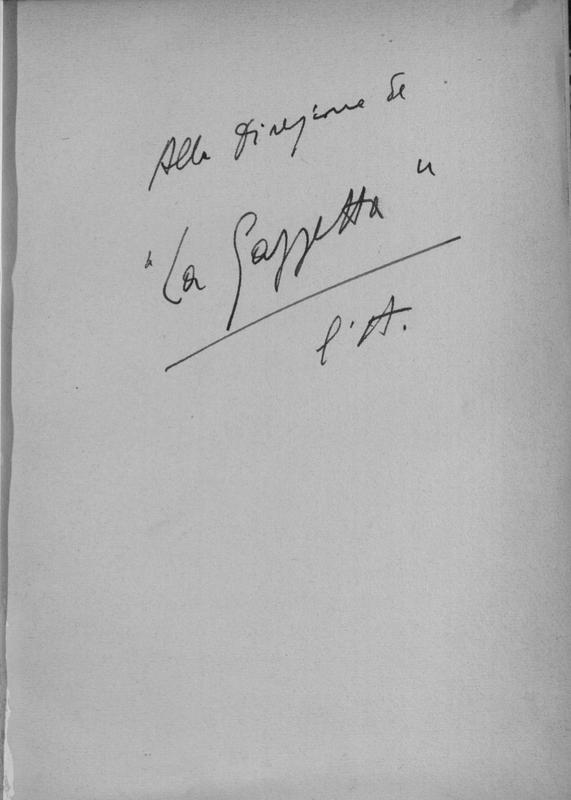 Alla Direzione de
"La Gazzetta"
l'A.